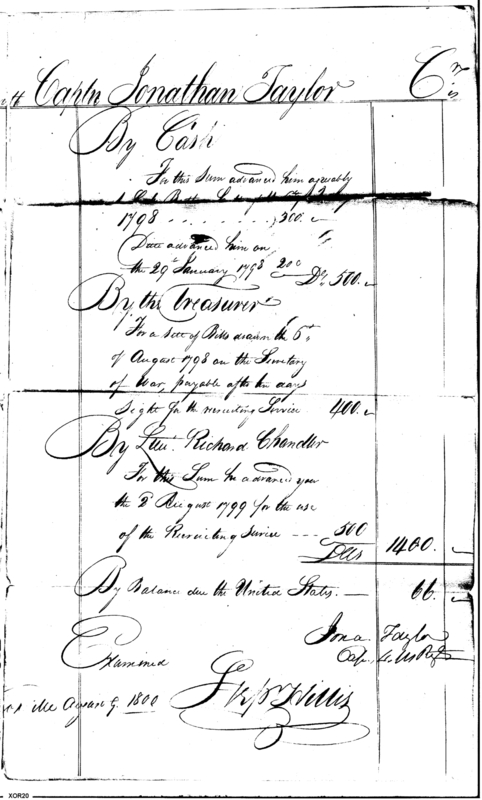 Captn Jonathan Taylor Cr
By Cash
For this Sum advanced him agreeably
1798 - - - - - 300.
Ditto advanced him on
the 29th January 1798 200 Ds. 500.
By the Treasurer
For a sett of Bills drawn the 6th
of August 1798 on the Secretary
of War, payable after ten days
sight for the recruiting Service 400.
By Lieut. Richard Chandler
For this Sum he advanced you
the 2d August 1799 for the use
of the Recruiting Service - - - - 500
Dlls 1400.
By Balance due the United States. — 66.
Jona. Taylor
Capn. 4. US Regt
Examined
1800
XOR20